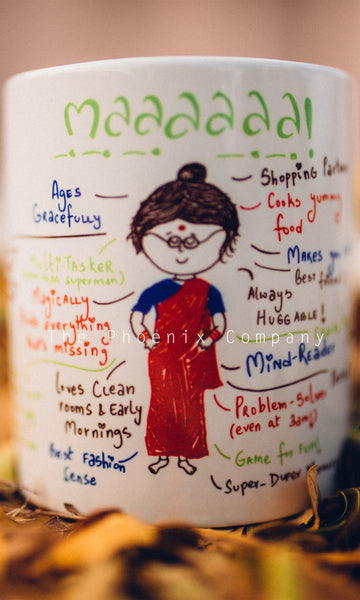 maaaaaa!
Ages
Gracefully
Multi-Tasker
than superman)
Magically
everything
missing
Loves Clean
rooms & Early
Mornings
Best Fashion
Sense
Shopping
Cooks yummy
food
Makes
Best
Always
HUGGABLE!
Mind-Reader
Problem-Solver
(even at 3am)
Game for Fun!
Super-Duper
The Phoenix Company